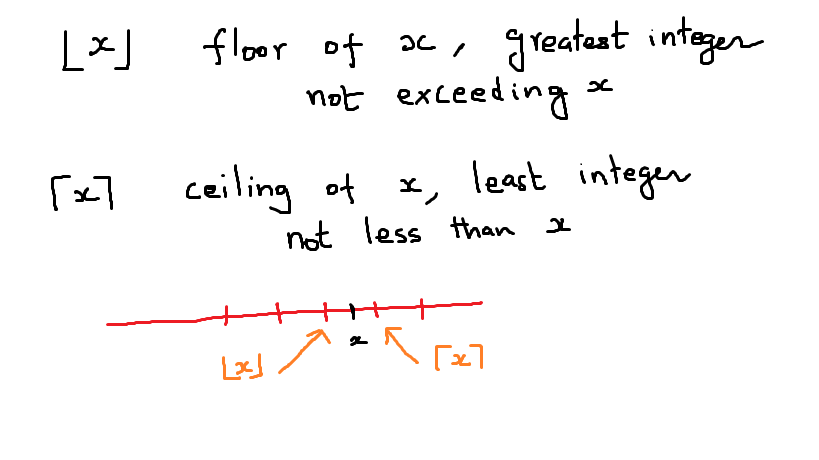 ⌊x⌋ floor of x, greatest integer
not exceeding x
⌈x⌉ ceiling of x, least integer
not less than x
x
⌊x⌋ ⌈x⌉